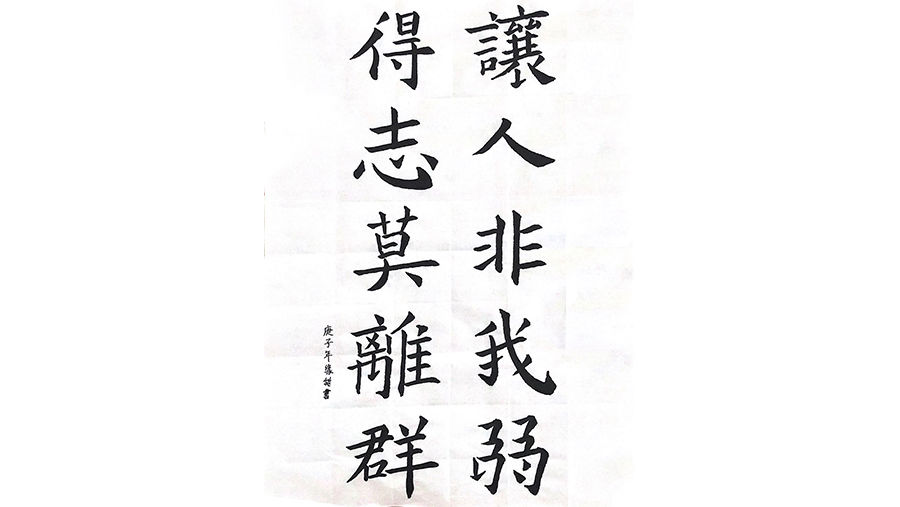 讓人非我弱
得志莫離群
庚子年